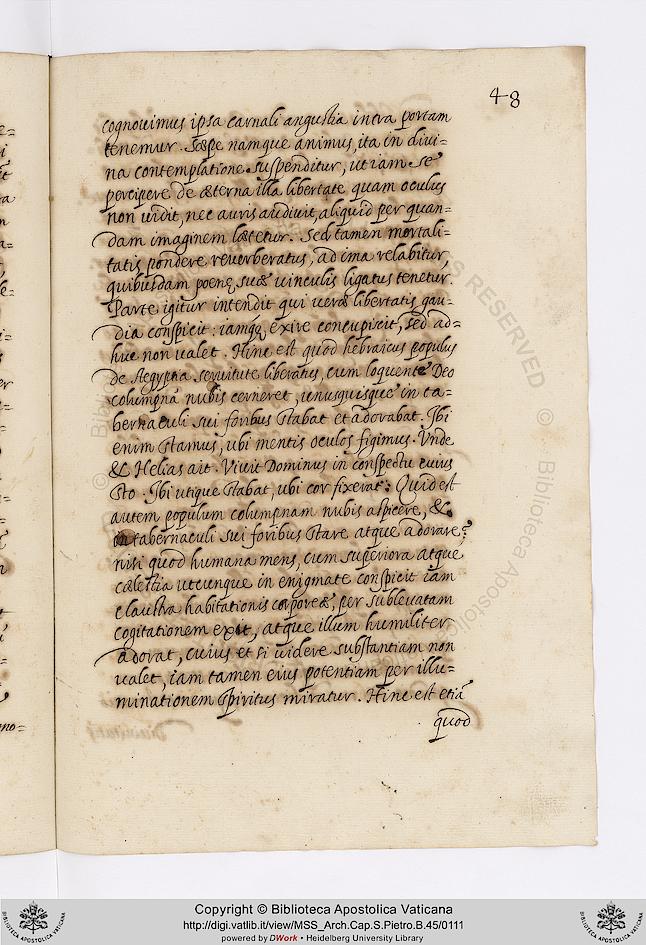 48
cognouimus ipsa carnali angustia intra portam
tenemur. Sæpe namque animus, ita in diui=
na contemplatione suspenditur, ut iam se
percipere de æterna illa libertate quam oculus
non uidit, nec auris audiuit, aliquid per quan=
dam imaginem lætetur. Sed tamen mortali=
tatis pondere reuerberatus, ad ima relabitur,
quibusdam poenę suæ uinculis ligatus tenetur.
Parte igitur intendit qui ueræ libertatis gau=
dia conspicit: iamqꝫ exire concupiscit, sed ad=
huc non ualet. Hinc est quod hebraicus populus
de Aegyptia seruitute liberatus, cum loquente Deo
columpna nubis cerneret, unusquisque in ta=
bernaculi sui foribus stabat et adorabat. Ibi
enim stamus, ubi mentis oculos figimus. Vnde
& Helias ait. Viuit Dominus in conspectu cuius
sto. Ibi utique stabat, ubi cor fixerat: Quid est
autem populum columpnam nubis aspicere, &
in tabernaculi sui foribus stare atque adorare?
nisi quod humana mens, cum superiora atque
cælestia utcunque in enigmate conspicit iam
claustra habitationis corporeæ, per subleuatam
cogitationem exit, atque illum humiliter
adorat, cuius et si uidere substantiam non
ualet, iam tamen eius potentiam per illu=
minationem spiritus miratur. Hinc est etiā
quod
Copyright © Biblioteca Apostolica Vaticana
http://digi.vatlib.it/view/MSS_Arch.Cap.S.Pietro.B.45/0111
powered by DWork • Heidelberg University Library